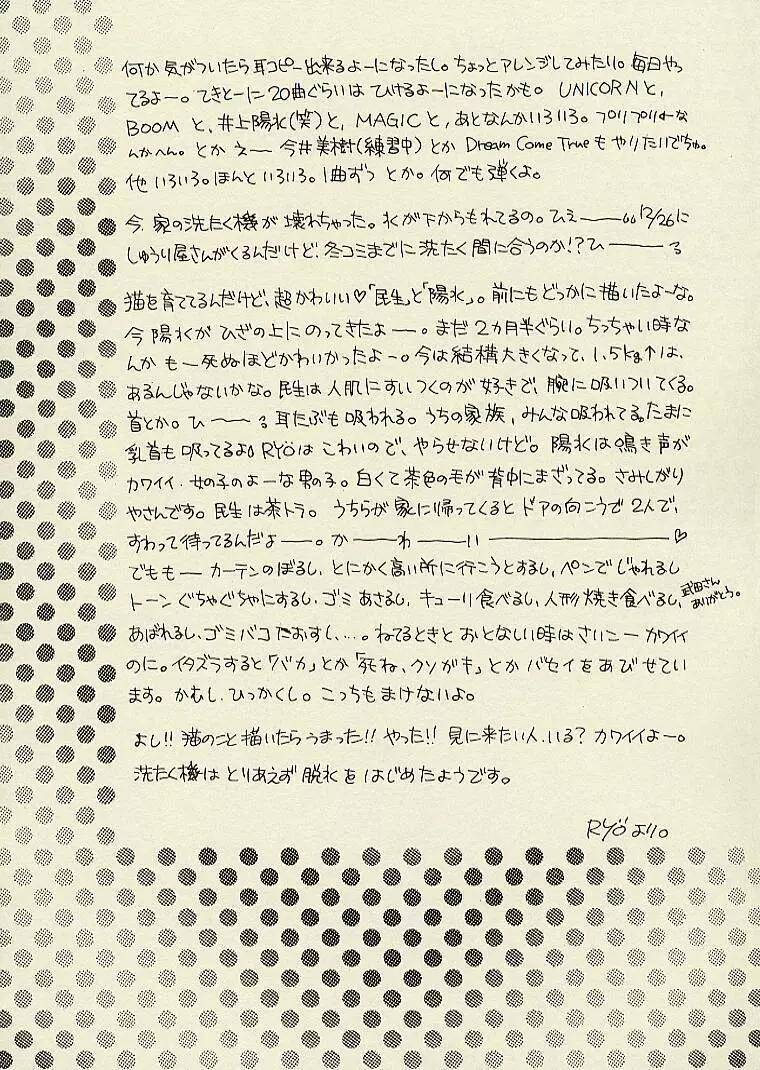 何か気がついたら耳コピー出来るよーになったし。ちょっとアレンジしてみたり。毎日やっ
てるよー。てきとーに20曲ぐらいは ひけるよーになったかも。UNICORNと、
BOOM と、井上陽水(笑)と、MAGICと、あとなんかいろいろ。プリプリな
んかへん。とか えー 今井美樹(練習中) とか Dream Come Trueも やりたいでちゅ。
他 いろいろ。ほんと いろいろ。1曲ずつ とか。何でも弾くよ。
今、家の洗たく機が 壊れちゃった。水が下からもれてるの。ひえ――〃12/26に
しゅうり屋さんがくるんだけど、冬コミまでに洗たく間に合うのか!?ひ―――る
猫を育ててるんだけど、超かわいい♡「民生」と「陽水」。前にもどっかに描いたよーな。
今 陽水が ひざの上にのってきたよー。まだ 2ヵ月半ぐらい。ちっちゃい時な
んか もー死ぬほどかわいかったよー。今は結構大きくなって、1.5kg↑は、
あるんじゃないかな。民生は人肌にすいつくのが好きで、腕に吸いついてくる。
首とか。ひ――る 耳たぶも吸われる。うちの家族、みんな吸われてる。たまに
乳首も吸ってるよ。RYÖは こわいので、やらせないけど。陽水は鳴き声が
カワイイ、女の子のよーな男の子。白くて茶色の毛が背中にまざってる。さみしがり
やさんです。民生は茶トラ。うちらが 家に帰ってくると ドアの向こうで 2人で、
すわって待ってるんだよー。か――わ――いー――――――♡
でももー カーテンのぼるし、とにかく高い所に行こうとするし、ペンでじゃれるし
トーンぐちゃぐちゃにするし、ゴミあさるし、キューリ食べるし、人形焼き食べるし、武田さんありがとう。
あばれるし、ゴミバコたおすし、…。ねてるときと おとなしい時はさいこー カワイイ
のに。イタズラすると「バカ」とか「死ね、クソがキ」とか バセイをあびせてい
ます。かむし、ひっかくし。こっちもまけないよ。
よし!! 猫のこと描いたらうまった!! やった!! 見に来たい人、いる? カワイイよー。
洗たく機は とりあえず 脱水を はじめたようです。
RYÖより。